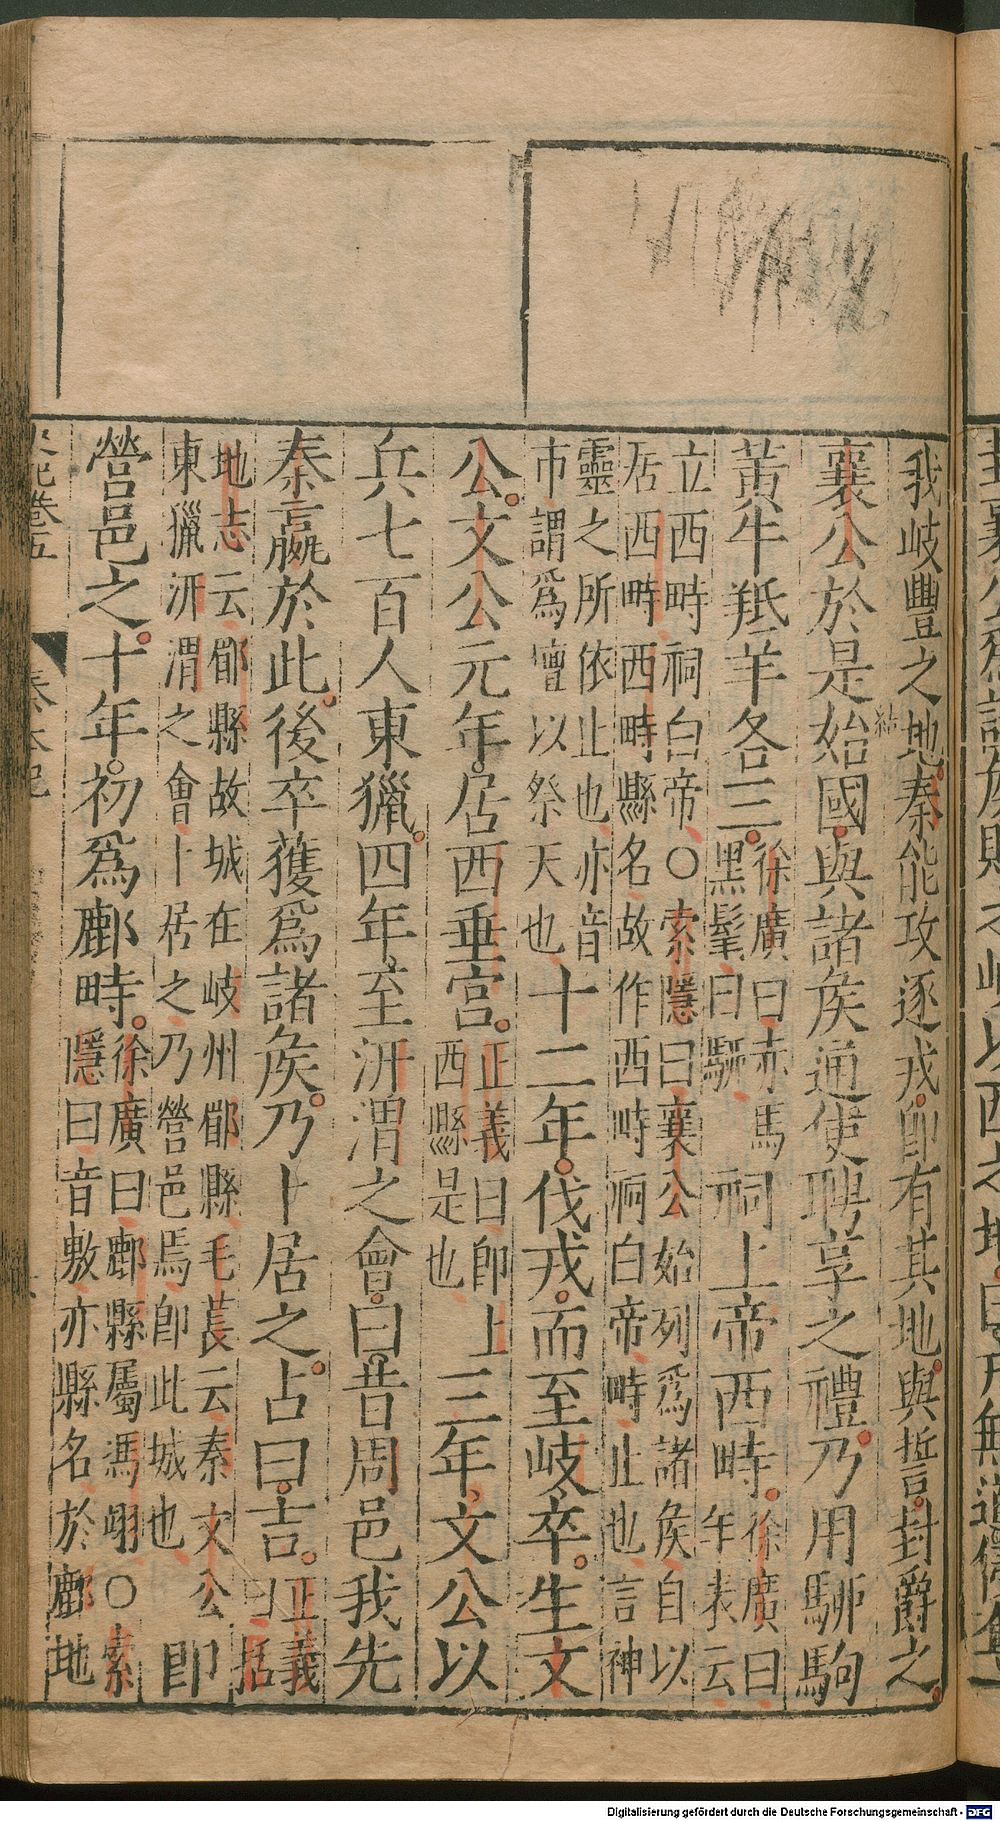 我岐豐之地秦能攻逐戎卽有其地與誓封爵之
襄公於是始國與諸侯通使聘享之禮乃用駵駒
黃牛羝羊各三徐廣曰赤馬黑髦曰駵祠上帝西畤徐廣曰年表云
立西畤祠白帝○索隱曰襄公始列爲諸侯自以
居西畤西畤縣名故作西畤祠白帝畤止也言神
靈之所依止也亦音
市謂爲壇以祭天也十二年伐戎而至岐卒生文
公文公元年居西垂宮正義曰卽上西縣是也三年文公以
兵七百人東獵四年至汧渭之會曰昔周邑我先
秦嬴於此後卒獲爲諸侯乃卜居之占曰吉正義曰括
地志云郿縣故城在岐州郿縣毛萇云秦文公
東獵汧渭之會卜居之乃營邑焉卽此城也卽
營邑之十年初爲鄜畤徐廣曰鄜縣屬馮翊○索隱曰音敷亦縣名於鄜地
史記卷五 秦本紀
Digitalisierung gefördert durch die Deutsche Forschungsgemeinschaft - DFG